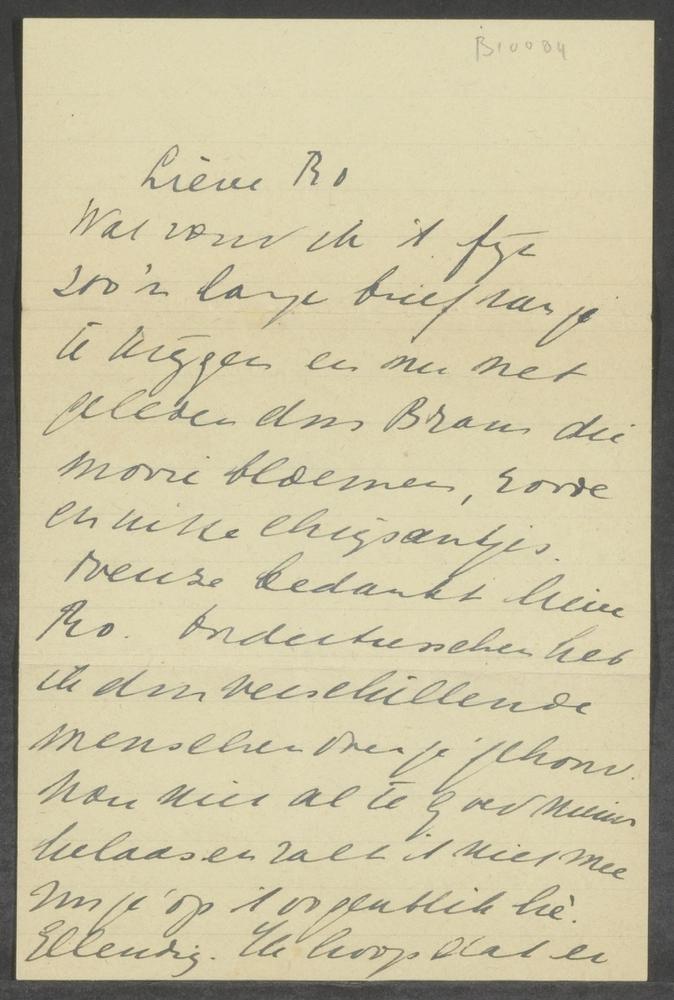 B10084
Lieve Ro
Wat vond ik 't fijn
zoo'n lange brief van je
te krijgen en nu net
geleden door Bram die
mooie bloemen, rode
en witte chrysantjes.
reuze bedankt lieve
Ro. Ondertusschen heb
ik door verschillende
menschen over je gehoord.
Nou niet al te goed nieuws
helaas en valt 't niet mee
voor je op 't oogenblik hè.
Ellendig. Ik hoop dat er